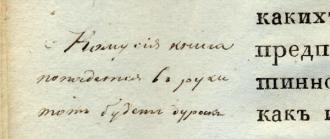 Кому сія книга
попадется въ руки
тотъ будетъ дуракъ
какихъ
предп
шинно
какъ